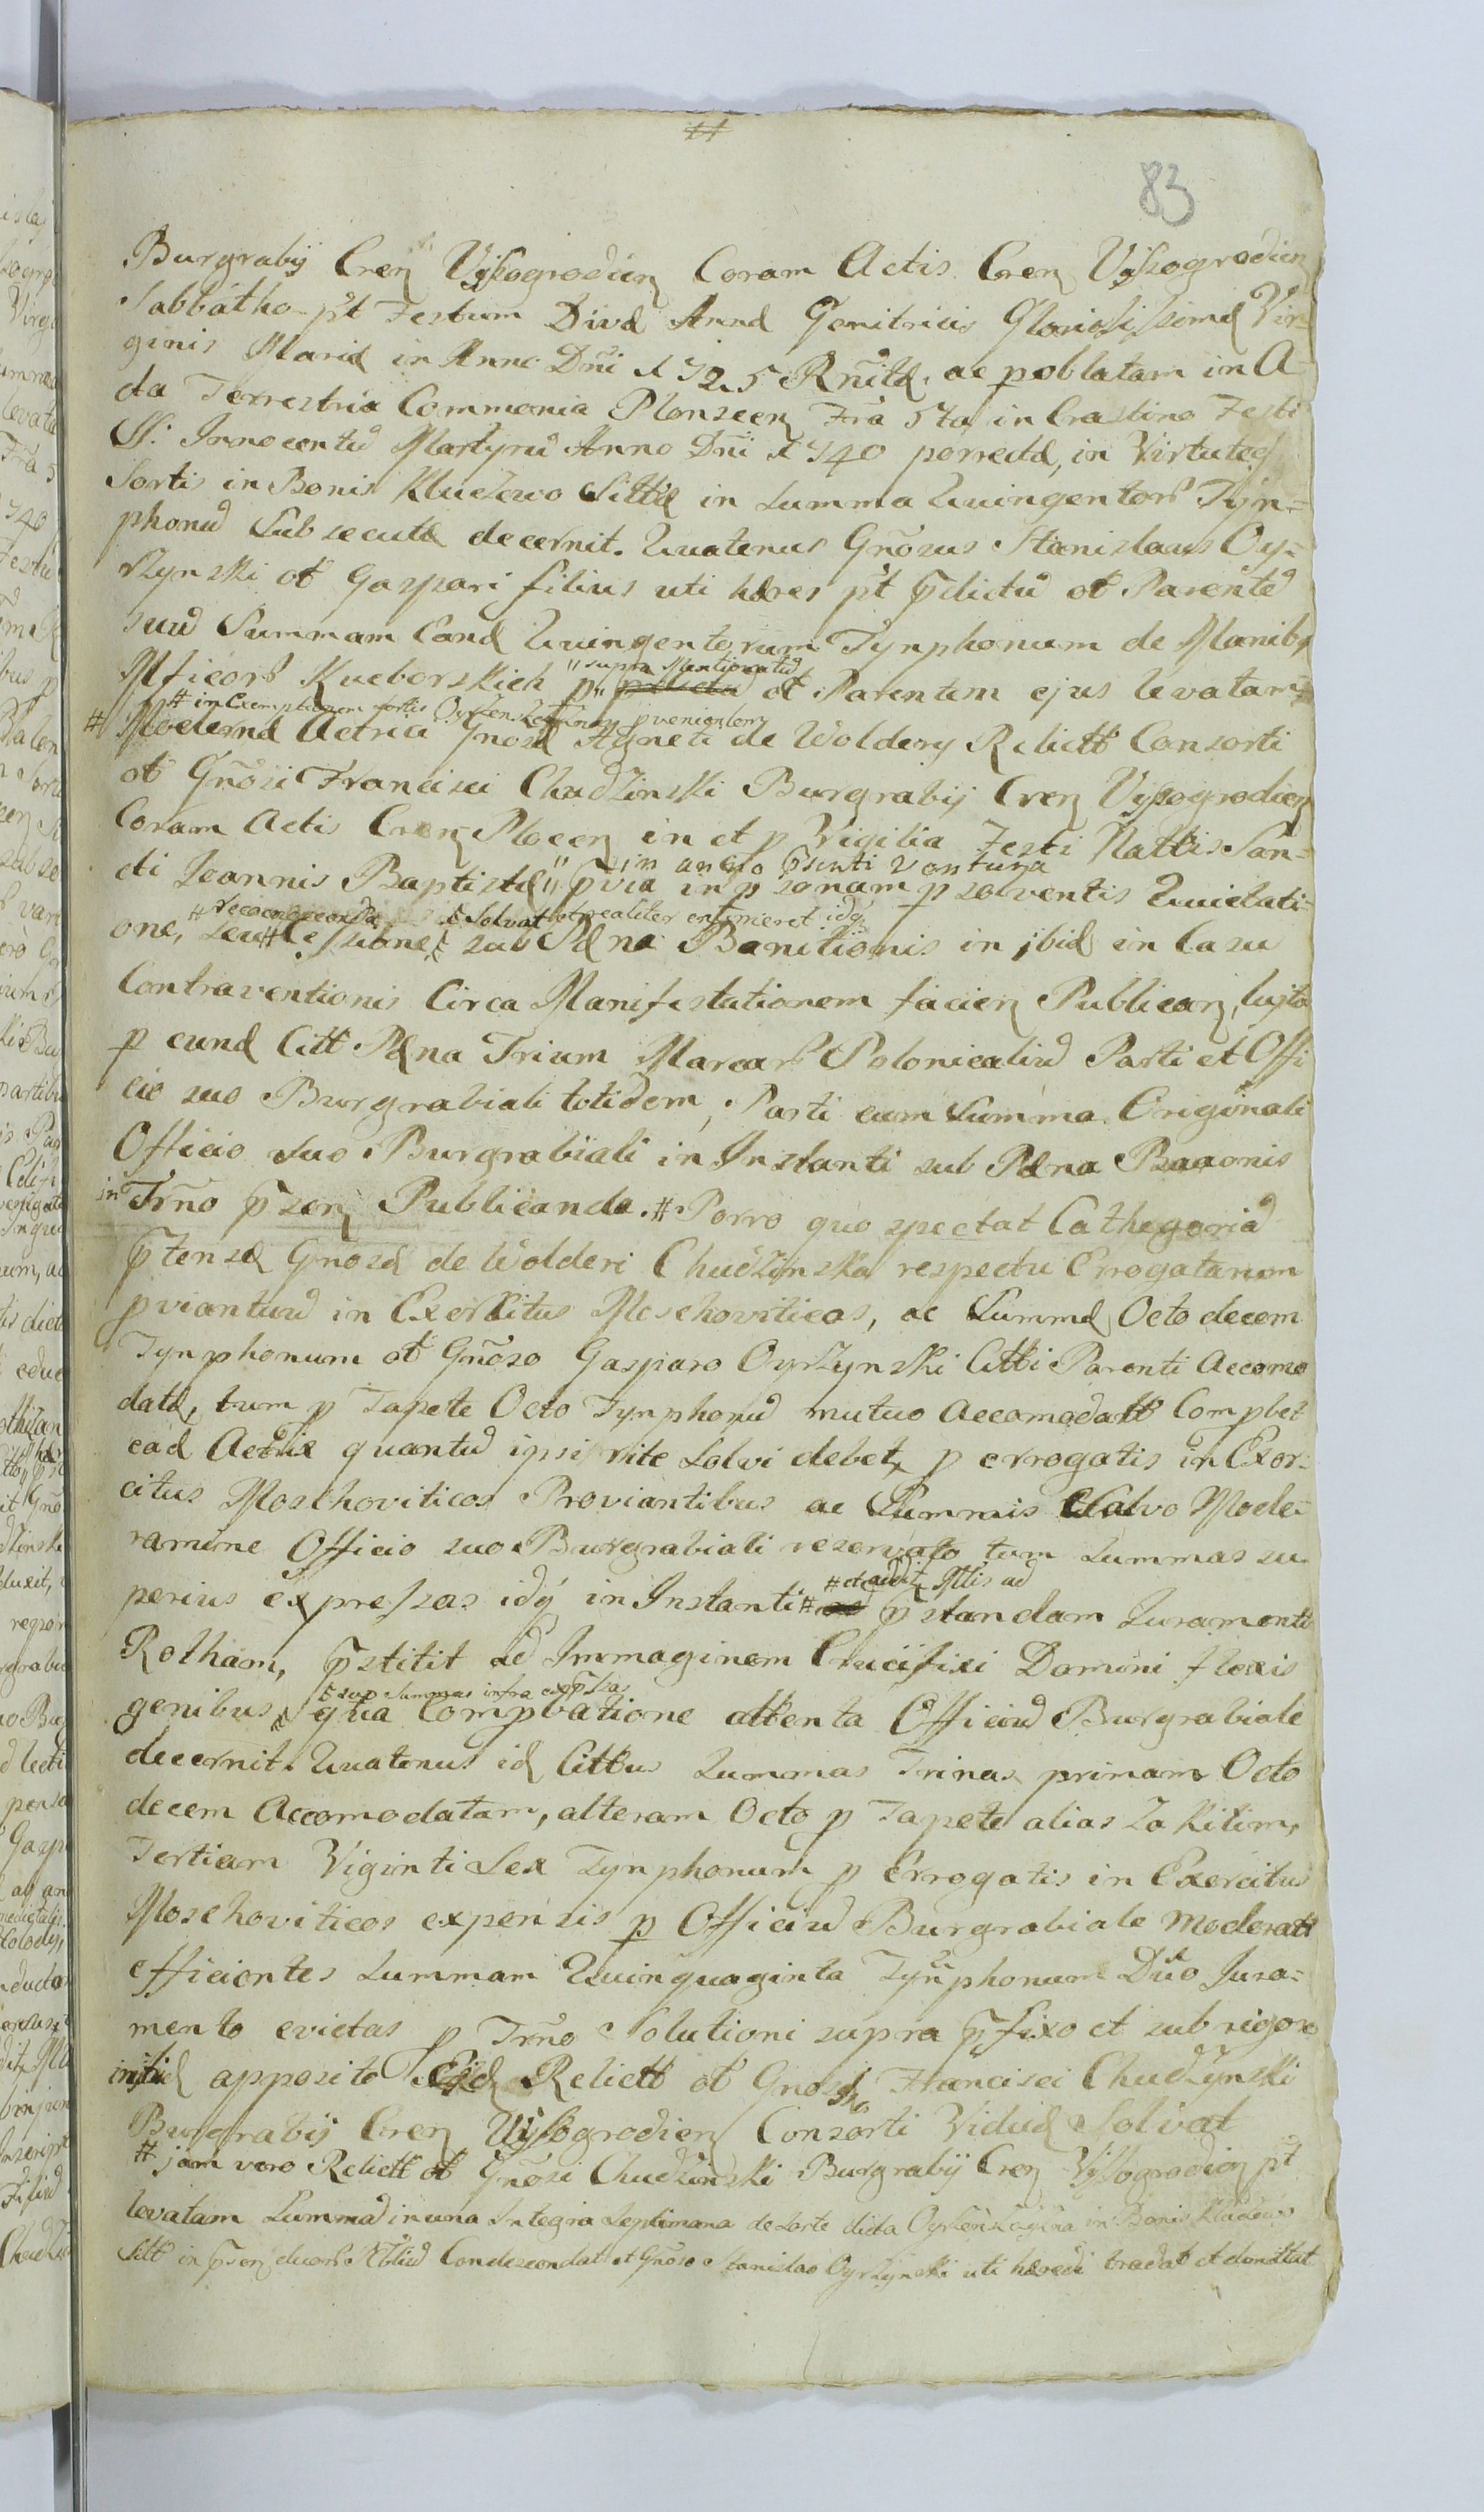 83
Burgrabÿ Cren Vÿssogrodien Coram Actis Cren Vÿszogrodien
Sabbatho pt Festum Divæ Annæ Genitricis Gloriosissimæ Vir-
ginis Mariæ in Anno Dñi 1725 Rñitæ, ac p oblatam in A-
cta Terrestria Commonia Plonscen Fra 5ta in Crastino Festi
SS. Innocentu Martyru Anno Dñi 1740 porrectæ, in Virtute
Sortis in Bonis Kluczewo Sittæ in Summa Quingentor Tÿn=
phonu Subsecutæ decernit. Quatenus Gñosus Stanislaus Oy=
rzynski ot Gaspari filius uti hæres pt p̄dictu ot Parente
suu Summam Eand Quingentorum Tynphonum de Manibq
Mficor Kucborskich p " supra Mentionatu ot Parentem ejus levatam
# in Exemptionem sortis Oyrzenszczyzna pvenientem
# Modernæ Actrici Gnosæ Agneti de Woldery Relictt Consorti
ot Gñosi Francisci Chudzinski Burgrabÿ Cren Vÿssogrodien
Coram Actis Cren Plocen in et p Vigilia Festi Nattis San-
cti Joannis Baptistæ " in anno p̄senti ventura p̄via in p sonam p solventis Quietati=
one, seu # recognoscenda Cessione, & Solvat et realiter enumeret idq sub Pæna Banitionis in ibid in Casu
Contraventionis Circa Manifestationem facien Publican, lujta
p eund Citt Pæna Trium Marcar Polonicaliu Parti et Offi
cio suo Burgrabiali totidem, Parti cum Summa Originali
Officio Suo Burgrabiali in Instanti sub Pæna Baaonis
in Trño p̄sen Publicanda. # Porro quo spectat Cathegoria
p̄tensæ Gnosæ de Wolderi Chudzinska respectu Errogatarum
pviantuu in Exercitus Moschoviticos, ac Summæ Octodecem
Tynphonum ot Gñoso Gasparo Oyrzynski Citti Parenti Accomo
datæ, tum p Tapete Octo Tynphonu mutuo Accomodatt Compbet
ead Actrix quantu ipsi rite Solvi debet, p errogatis in Exer-
citus Moschoviticos Proviantibus ac Summis Salvo Mode=
ramine Officio suo Burgrabiali reservato tum Summas su
perius expressas idq in Instanti # et addit Mtis ad p̄standam Juramenti
Rotham, p̄stitit ad Immaginem Crucifixi Domini flexis
genibus, & sup Summas infra exp̄ssas qua Compbatione attenta Officiu Burgrabiale
decernit. Quatenus id Cittus Summas Trinas primam Octo
decem Accomodatam, alteram Octo p Tapete alias za Kilim,
Tertiam Viginti Sex Tynphonum p Errogatis in Exercitus
Moschoviticos expensis p Officiu Burgrabiale Moderatt
efficientes Summam Quinquaginta Tÿnphonum Duo Jura=
mento evictas p Trño Solutioni supra p̄fixo et sub rigore
apposito Relictt ot Gnosi Francisci Chudzynski
Burgrabÿ Cren Vÿssogrodien Consorti Viduæ Solvat
# jam vero Relictt ot Gñosi Chudzinski Burgrabÿ Cren Vÿssogrodien pt
levatam Summa in una Integra Septimana de Sorte dicta Oyrzenszczyzna in Bonis Kluczewo
Sitt in p̄sen duor Nbliu Condescendat et Gñoso Stanislao Oyrzynski uti hæredi tradat et dimittat